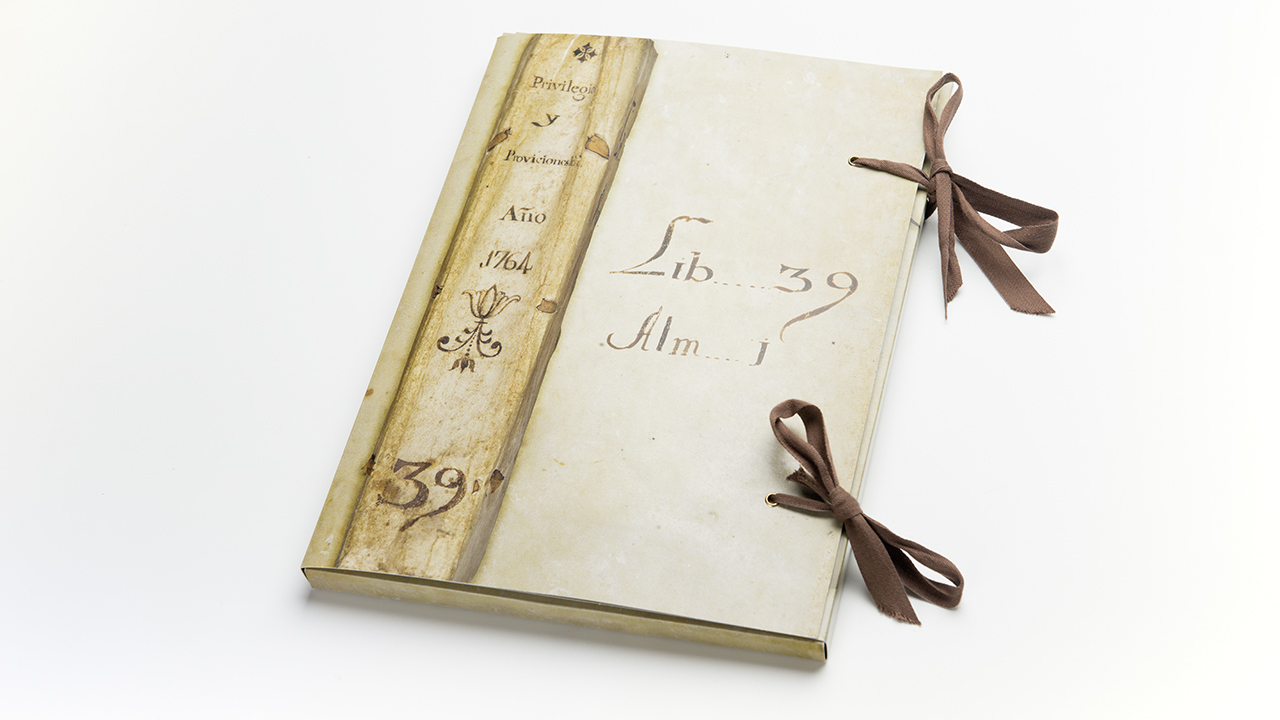 Privilegio
y
Proviciones &c.
Año
1764
39
Lib......39
Alm.....j